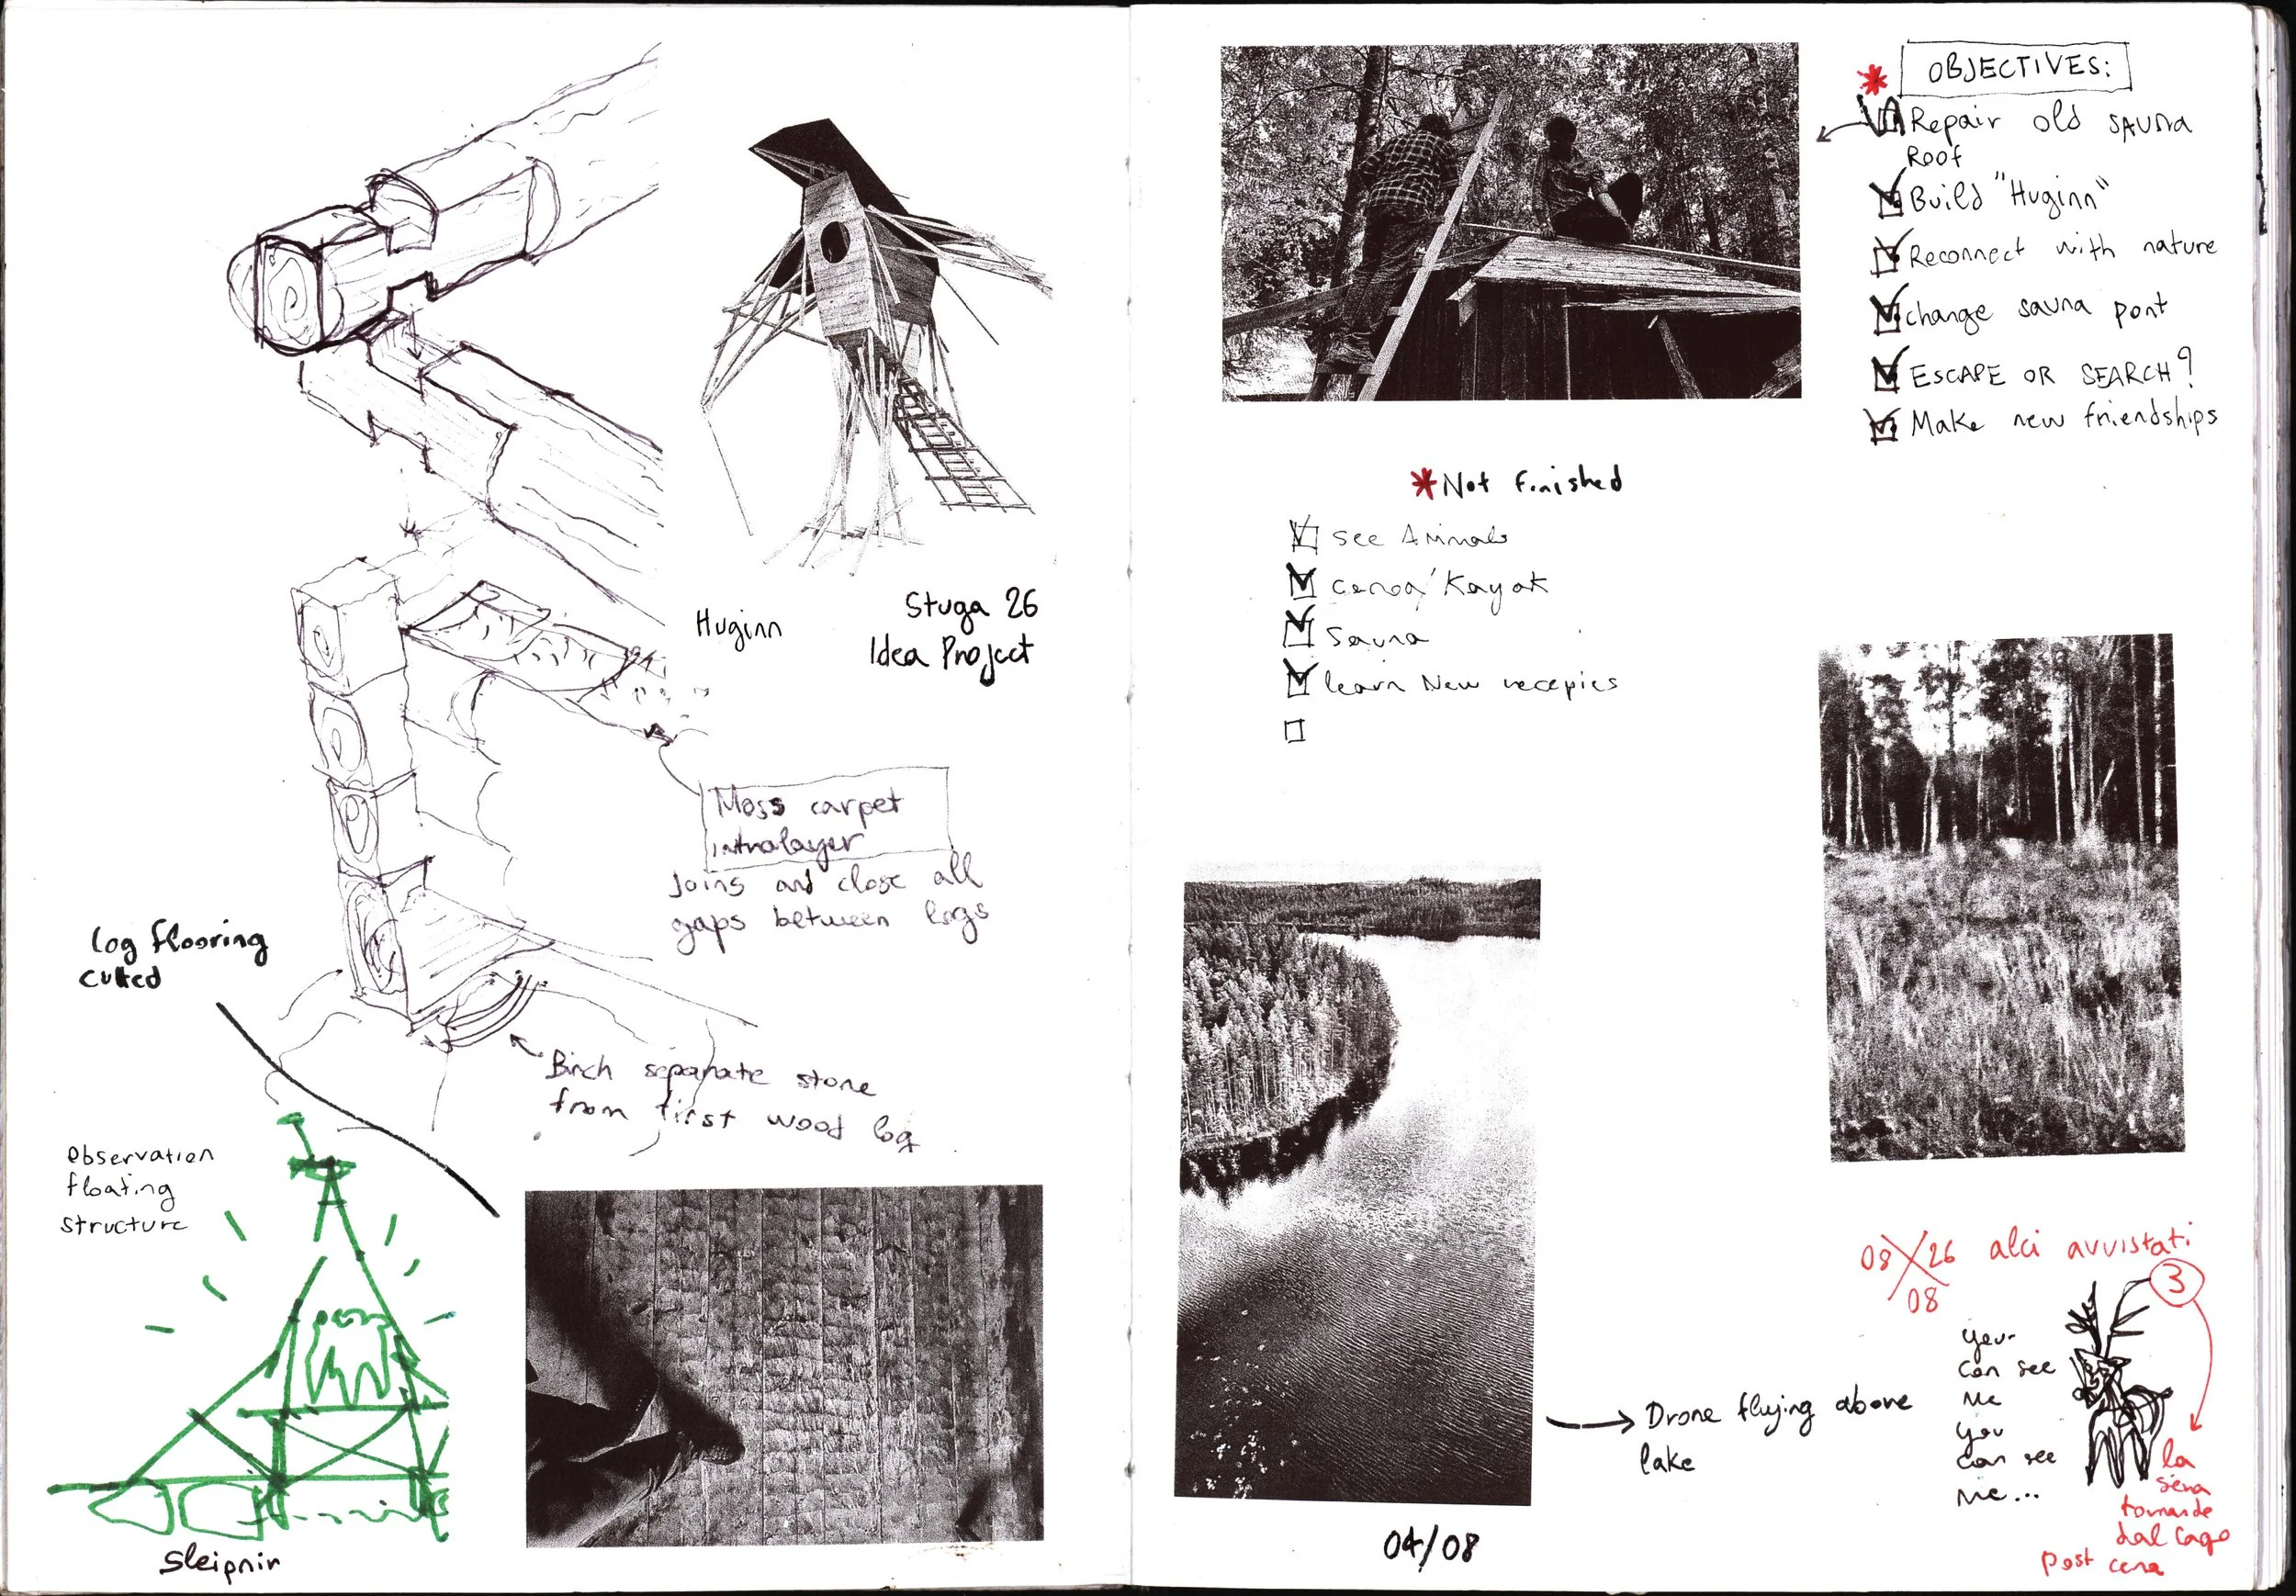 Huginn
Stuga 26
Idea Project
Moss carpet
intralayer
Joins and close all
gaps between logs
Log flooring
cutted
Birch separate stone
from first wood log
Observation
floating
structure
Sleipnir
OBJECTIVES:
* Repair old sauna
Roof
Build "Huginn"
Reconnect with nature
change sauna pont
ESCAPE OR SEARCH?
Make new friendships
*Not finished
see Animals
canoa/Kayak
Sauna
learn New recepies
Drone flying above
lake
04/08
08/26 alci avvistati
08
3
you
can see
me
you
can see
me...
la
sera
tornando
dal lago
post cena